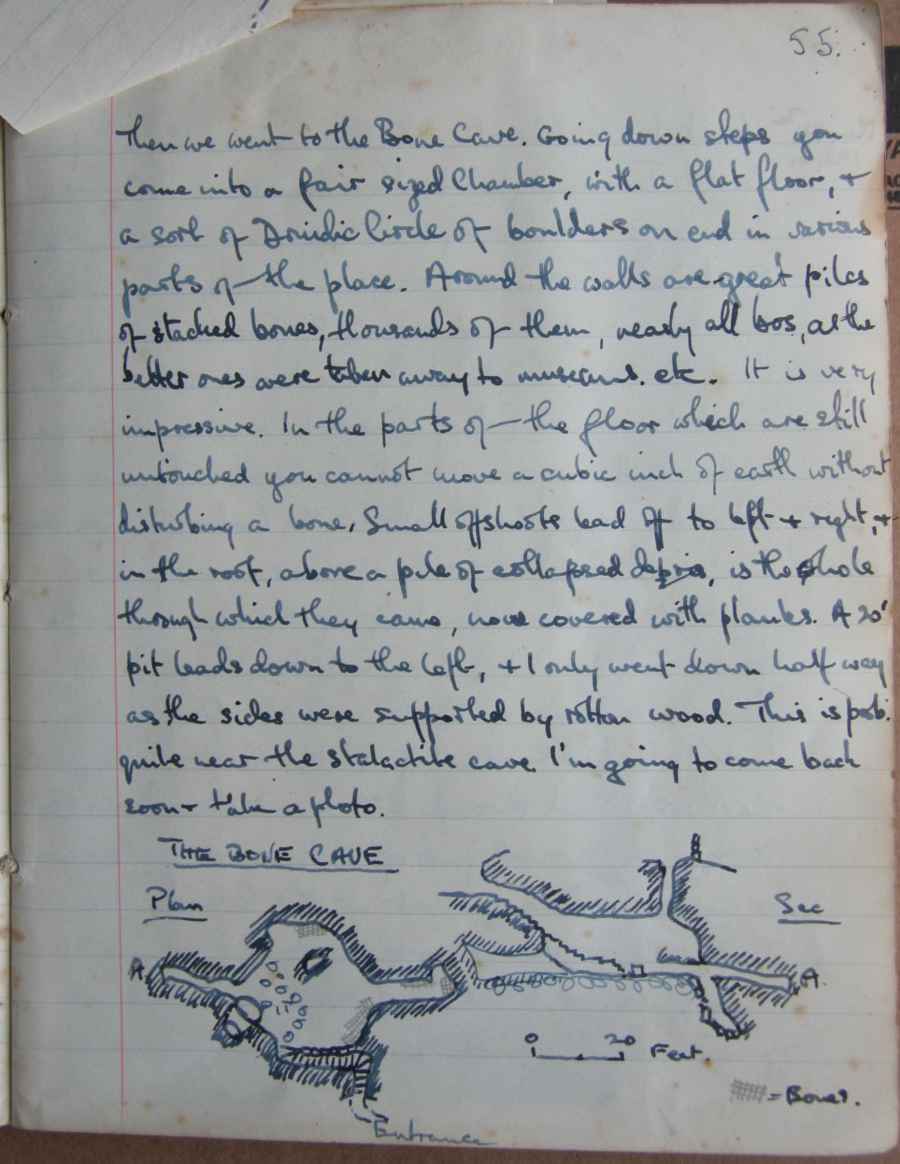 55.
Then we went to the Bone Cave. Going down steps you
come into a fair sized Chamber, with a flat floor, +
a sort of Druidic Circle of boulders on end in various
parts of the place. Around the walls are great piles
of stacked bones, thousands of them, nearly all bos, as the
better ones were taken away to museums. etc. It is very
impressive. In the parts of the floor which are still
untouched you cannot move a cubic inch of earth without
disturbing a bone. Small offshoots lead off to left + right, +
in the roof, above a pile of collapsed debris, is the hole
through which they came, now covered with planks. A 20'
pit leads down to the left, + I only went down half way
as the sides were supported by rotten wood. This is prob.
quite near the stalactite cave. I'm going to come back
soon + take a photo.
THE BONE CAVE
Plan
Sec
A
A.
0 20 Feet.
= Bones.
Entrance